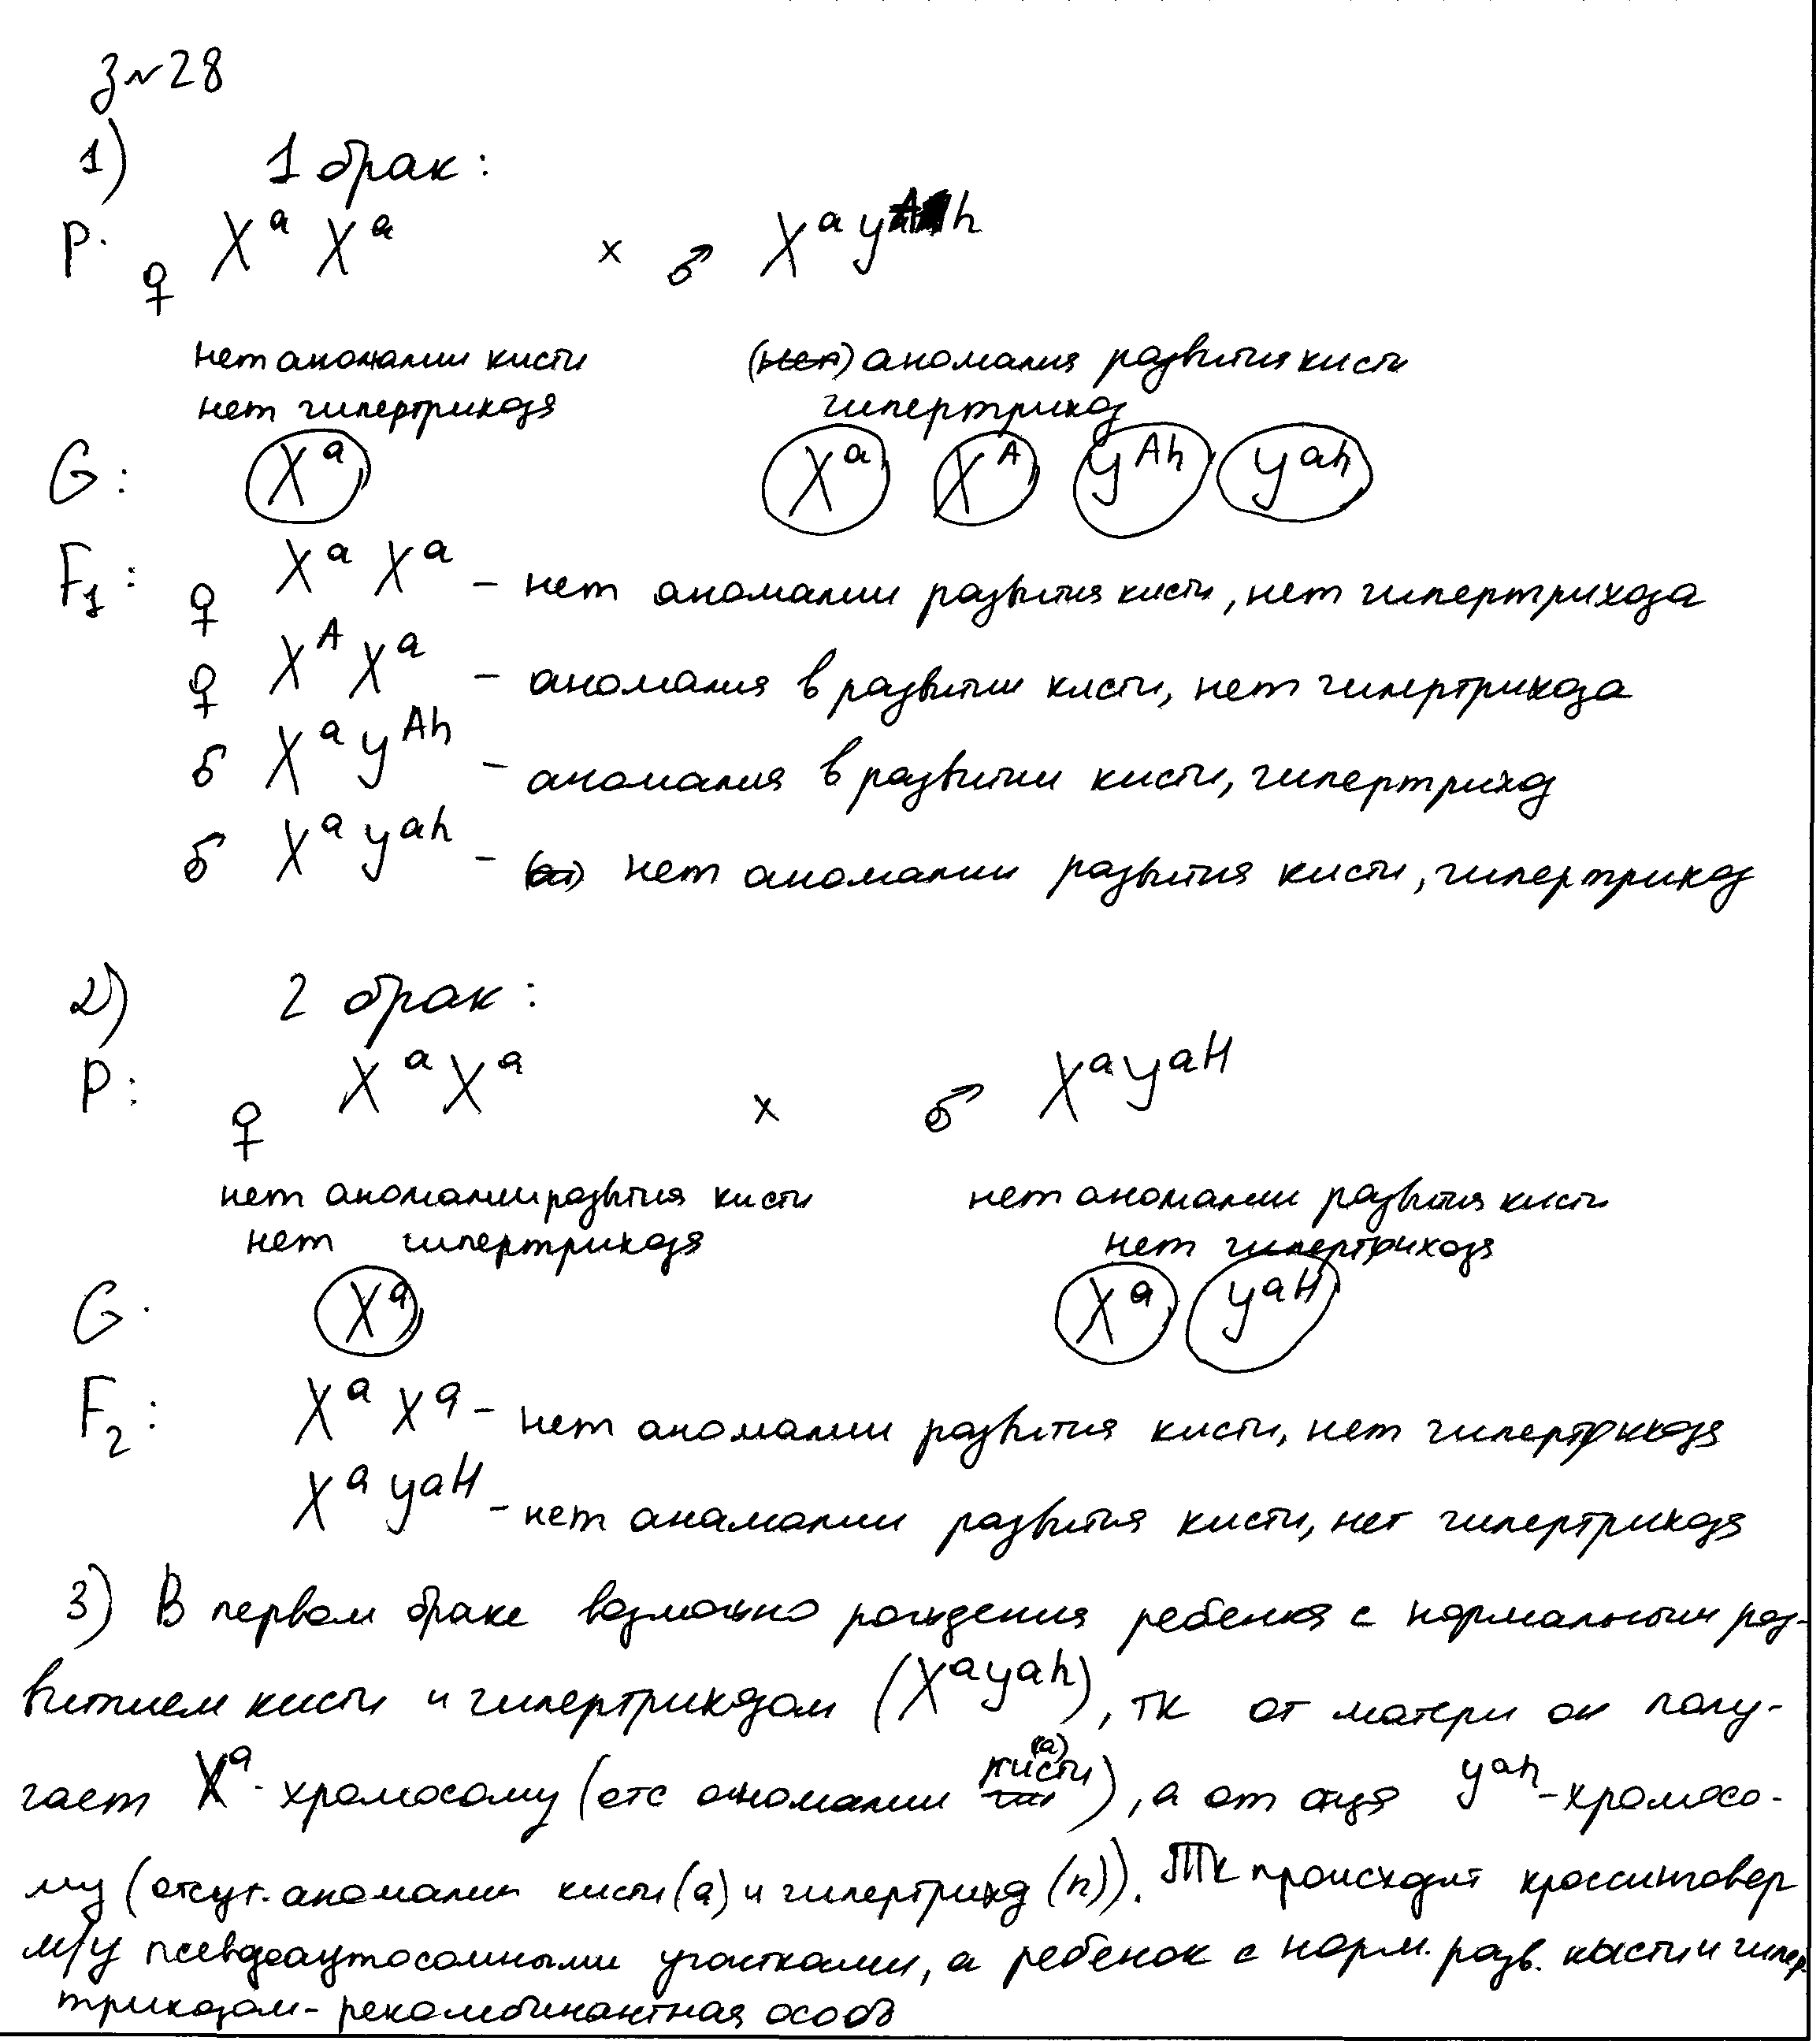 з№28
1) 1 брак:
P. ♀ XᵃXᵃ x ♂ Xᵃyᴬʰ
нет аномалии кисти (нет) аномалия развития кисти
нет гипертрихоза гипертрихоз
G: Xᵃ Xᵃ Xᴬ yᴬʰ yᵃʰ
F₁: ♀ XᵃXᵃ - нет аномалии развития кисти, нет гипертрихоза
♀ XᴬXᵃ - аномалия в развитии кисти, нет гипертрихоза
♂ Xᵃyᴬʰ - аномалия в развитии кисти, гипертрихоз
♂ Xᵃyᵃʰ - нет аномалии развития кисти, гипертрихоз
2) 2 брак:
P: ♀ XᵃXᵃ x ♂ Xᵃyᵃᴴ
нет аномалии развития кисти нет аномалии развития кисти
нет гипертрихоза нет гипертрихоза
G. Xᵃ Xᵃ yᵃᴴ
F₂: XᵃXᵃ - нет аномалии развития кисти, нет гипертрихоза
Xᵃyᵃᴴ - нет анамалии развития кисти, нет гипертрихоза
3) В первом браке возможно рождения ребенка с нормальным раз-
витием кисти и гипертрихозом (Xᵃyᵃʰ), тк от матери он полу-
чает Xᵃ-хромосому (отс аномалии кисти (а)), а от отца yᵃʰ-хромосо-
му (отсут. аномалии кисти (а) и гипертрихоз (h)). Тк происходит кроссинговер
м/у псевдоаутосомными участками, а ребенок с норм. разв. кисти и гипер
трихозом - рекомбинантная особь